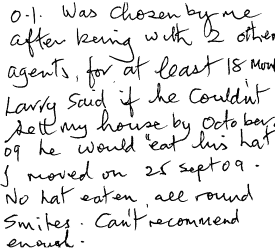 O.I. Was chosen by me
after being with 2 other
agents, for at least 18 mon
Larry said if he couldn't
sell my house by October
09 he would "eat his hat
I moved on 25 Sept 09.
No hat eaten, all round
smiles. Can't recommend
enough.